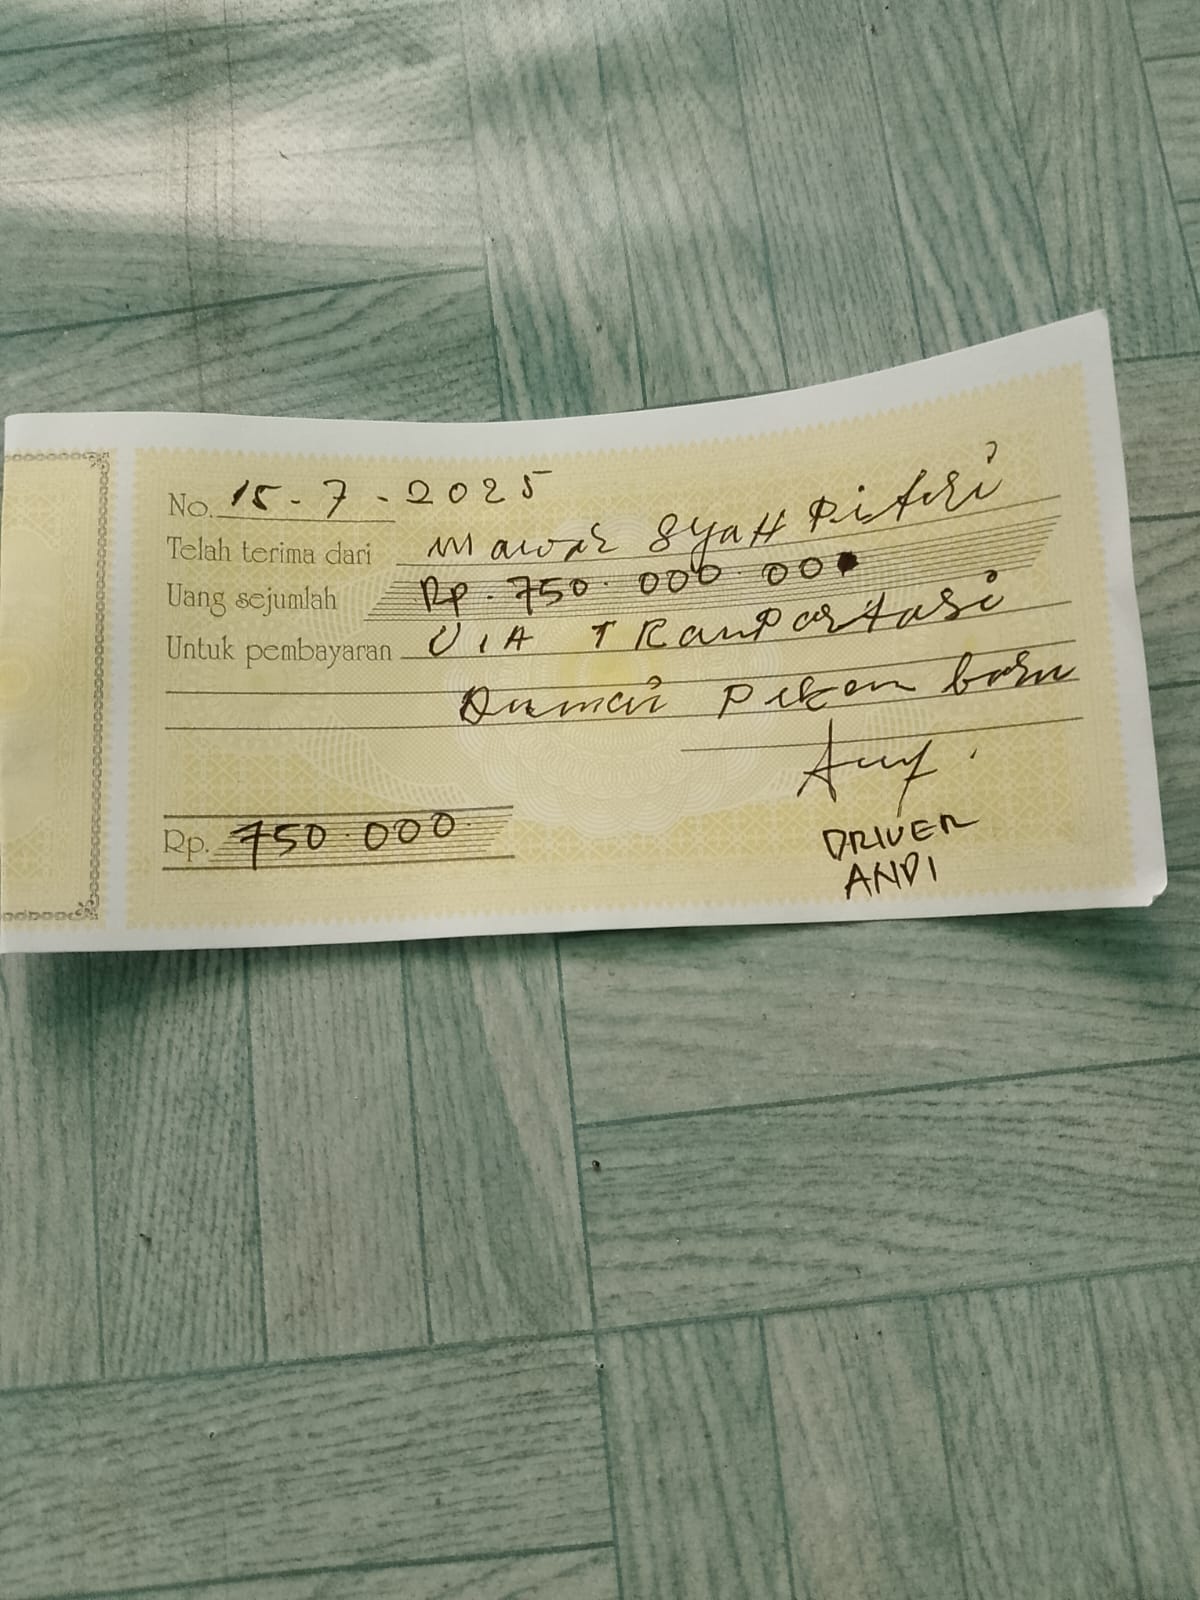 No. 15-7-2025
Telah terima dari Mawar Syah Pitri
Uang sejumlah Rp. 750.000.00
Untuk pembayaran VIA TRanPortasi
Dumai Pekan baru
Rp. 750.000.
DRIVER
ANDI